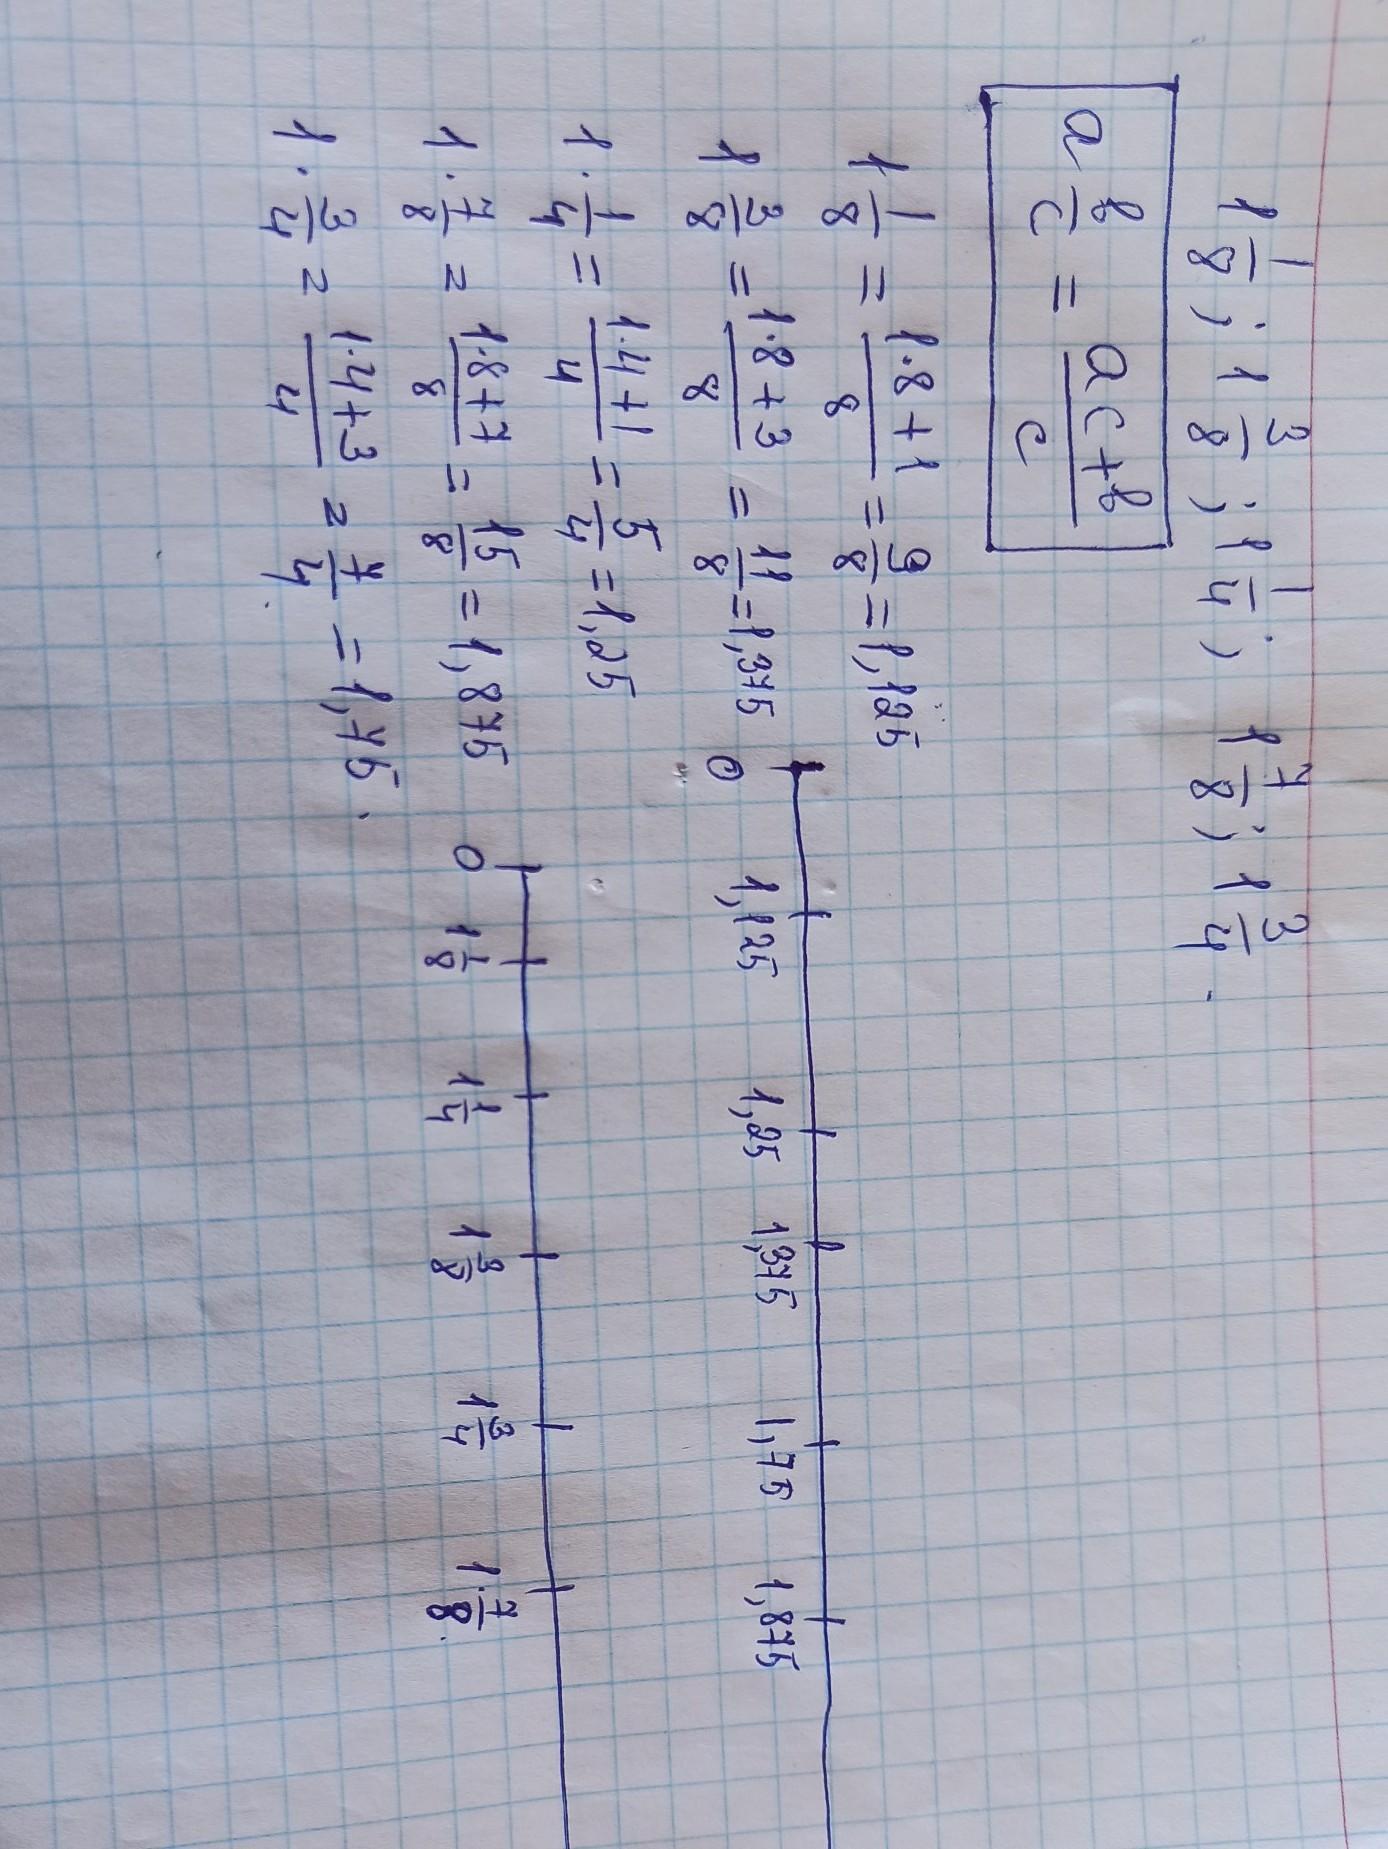 1 1/8; 1 3/8; 1 1/4; 1 7/8; 1 3/4.
a b/c = ac+b/c
1 1/8 = 1·8+1/8 = 9/8 = 1,125
1 3/8 = 1·8+3/8 = 11/8 = 1,375
1·1/4 = 1·4+1/4 = 5/4 = 1,25
1·7/8 = 1·8+7/8 = 15/8 = 1,875
1·3/4 = 1·4+3/4 = 7/4 = 1,75.
0 1,125 1,25 1,375 1,75 1,875
0 1 1/8 1 1/4 1 3/8 1 3/4 1·7/8.